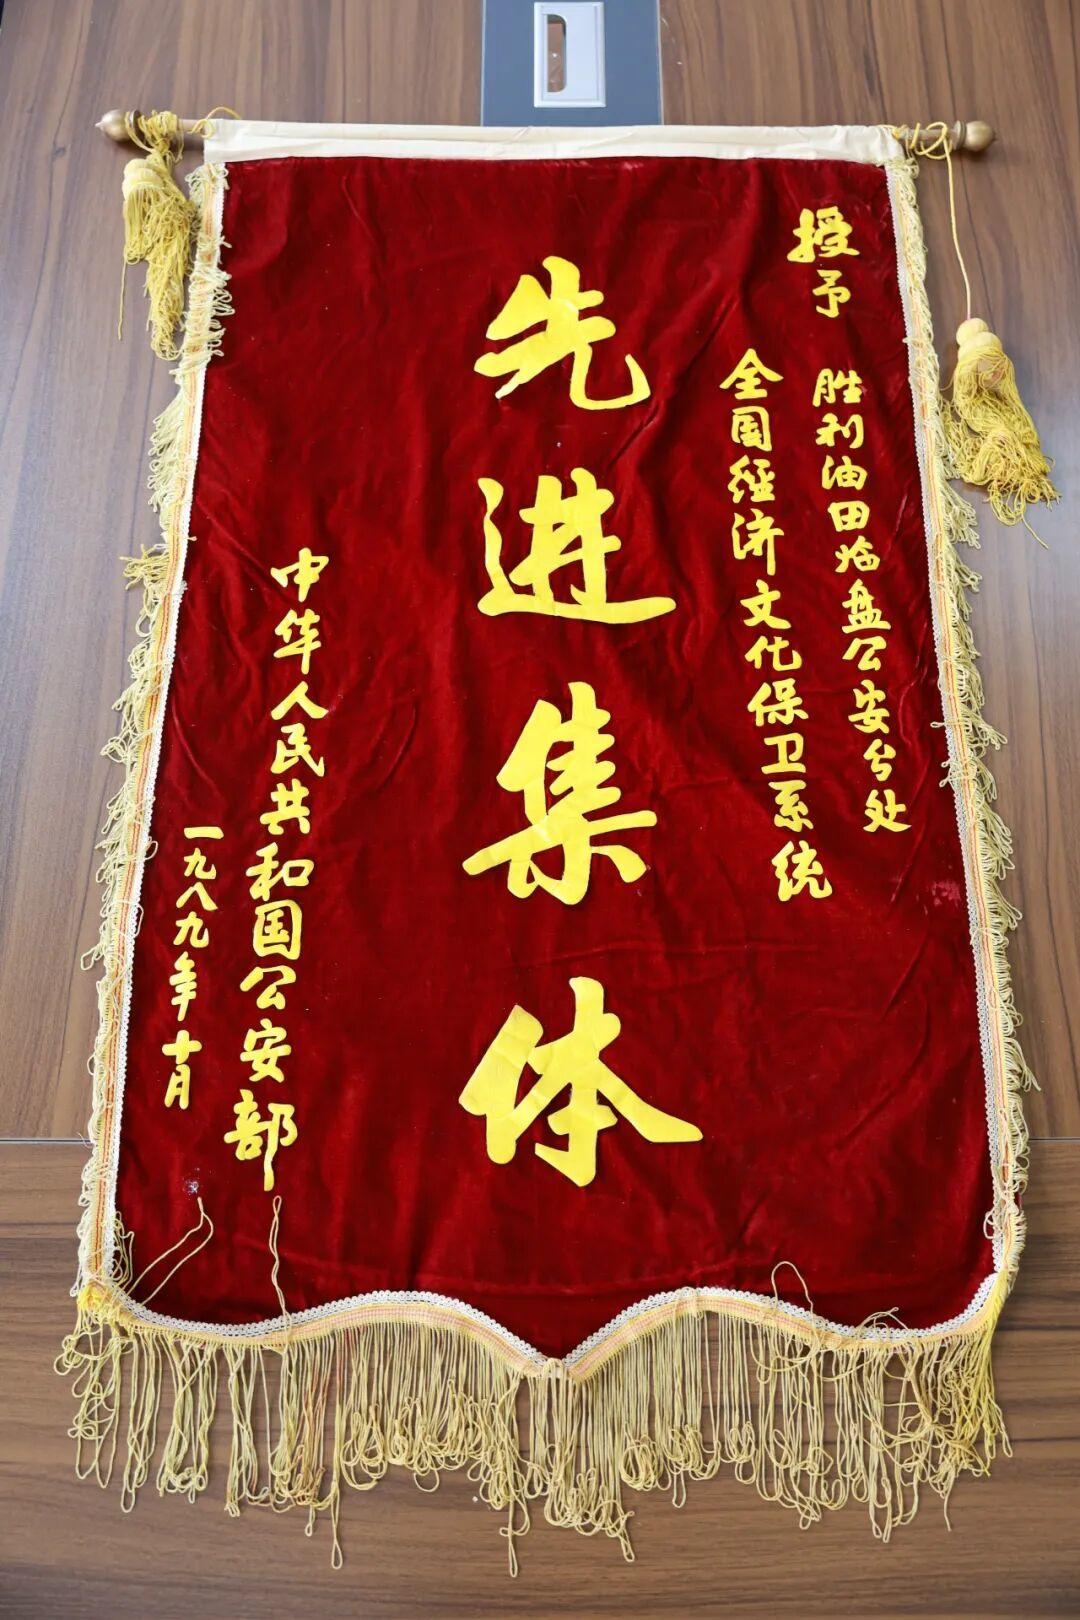 授予
胜利油田临盘公安分处
全国经济文化保卫系统
先进集体
中华人民共和国公安部
一九八九年十月